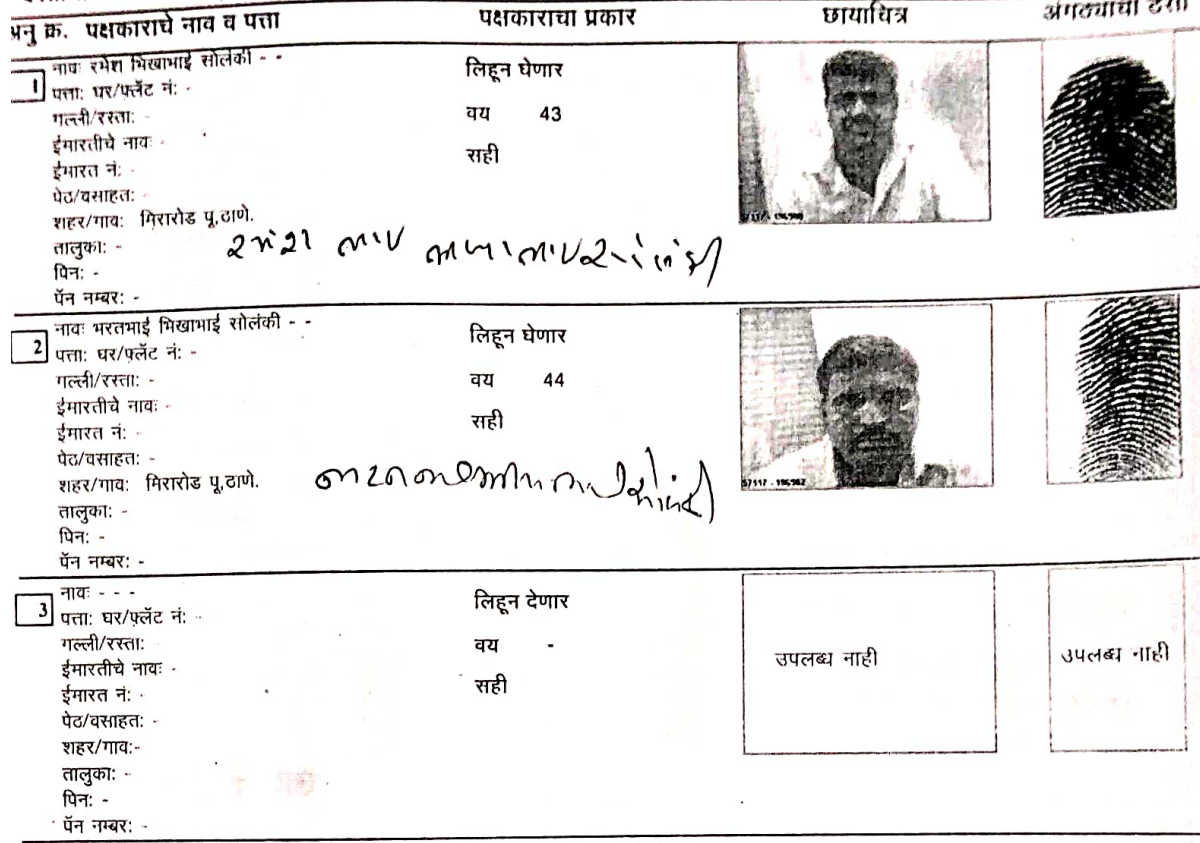 अनु क्र. पक्षकाराचे नाव व पत्ता पक्षकाराचा प्रकार छायाचित्र अंगठ्याचा ठसा
1
नावः रमेश भिखाभाई सोलंकी - -
पत्ता: घर/फ्लॅट नं: -
गल्ली/रस्ता: -
ईमारतीचे नावः -
ईमारत नं: -
पेठ/वसाहत: -
शहर/गाव: मिरारोड पू.ठाणे.
तालुका: -
पिन: -
पॅन नम्बर: -
लिहून घेणार
वय 43
सही
2
नावः भरतभाई भिखाभाई सोलंकी - -
पत्ता: घर/फ्लॅट नं: -
गल्ली/रस्ता: -
ईमारतीचे नावः -
ईमारत नं: -
पेठ/वसाहत: -
शहर/गाव: मिरारोड पू.ठाणे.
तालुका: -
पिन: -
पॅन नम्बर: -
लिहून घेणार
वय 44
सही
57117 - 196982
3
नावः - - -
पत्ता: घर/फ्लॅट नं: -
गल्ली/रस्ता: -
ईमारतीचे नावः -
ईमारत नं: -
पेठ/वसाहत: -
शहर/गाव:-
तालुका: -
पिन: -
पॅन नम्बर: -
लिहून देणार
वय -
सही
उपलब्ध नाही
उपलब्ध नाही